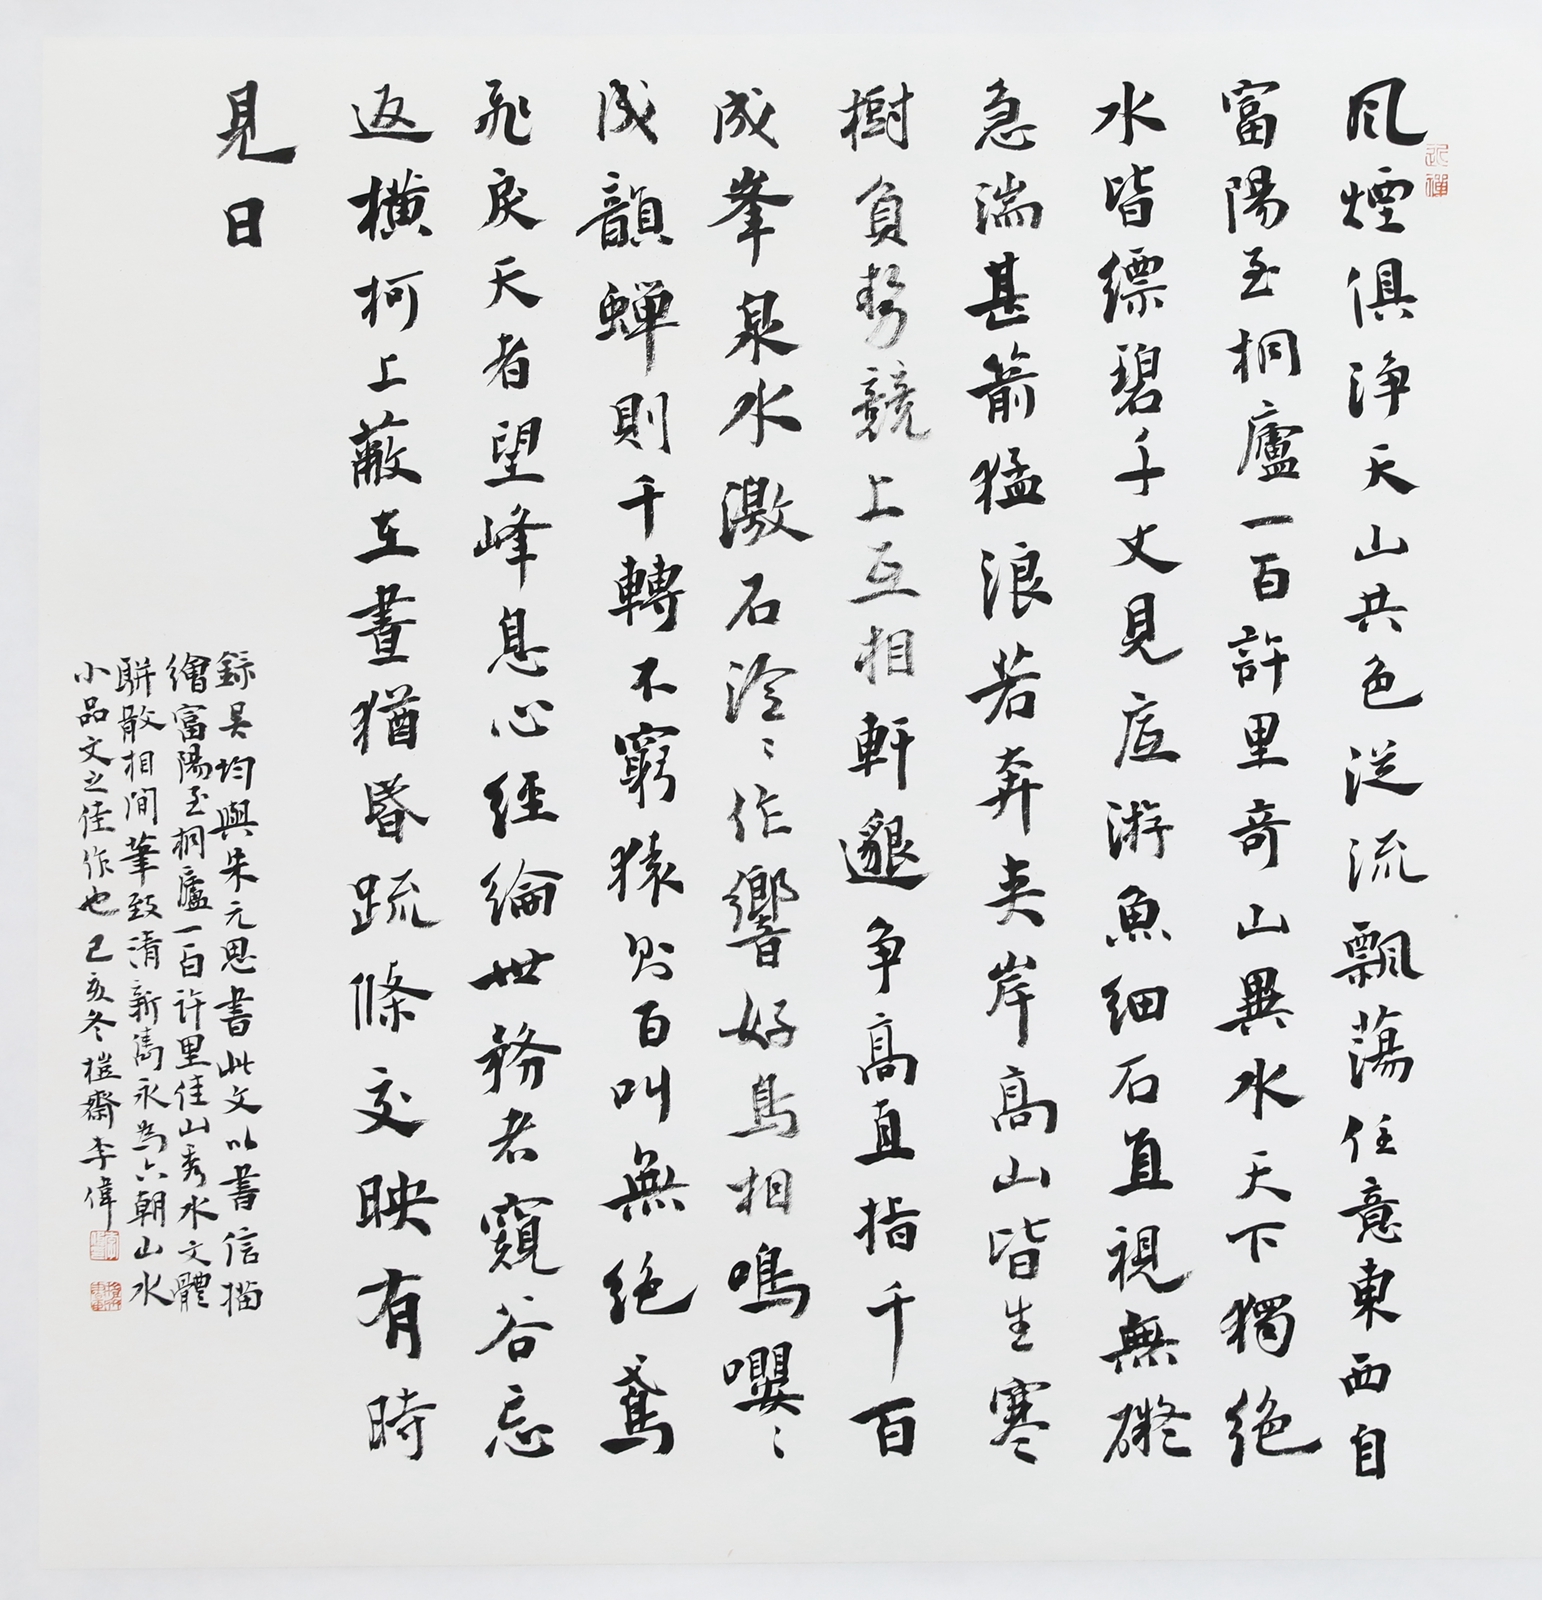 風煙俱淨天山共色從流飄蕩任意東西自
富陽至桐廬一百許里奇山異水天下獨絕
水皆縹碧千丈見底游魚細石直視無礙
急湍甚箭猛浪若奔夹岸高山皆生寒
樹負勢競上互相軒邈爭高直指千百
成峯泉水激石泠〻作響好鳥相鳴嚶〻
成韻蟬則千轉不窮猿則百叫無絕鳶
飛戾天者望峰息心經綸世務者窺谷忘
返橫柯上蔽在晝猶昏疏條交映有時
見日
錄吳均與朱元思書此文以書信描
繪富陽至桐廬一百許里佳山秀水文體
駢散相間筆致清新雋永為六朝山水
小品文之佳作也己亥冬榿齋李偉